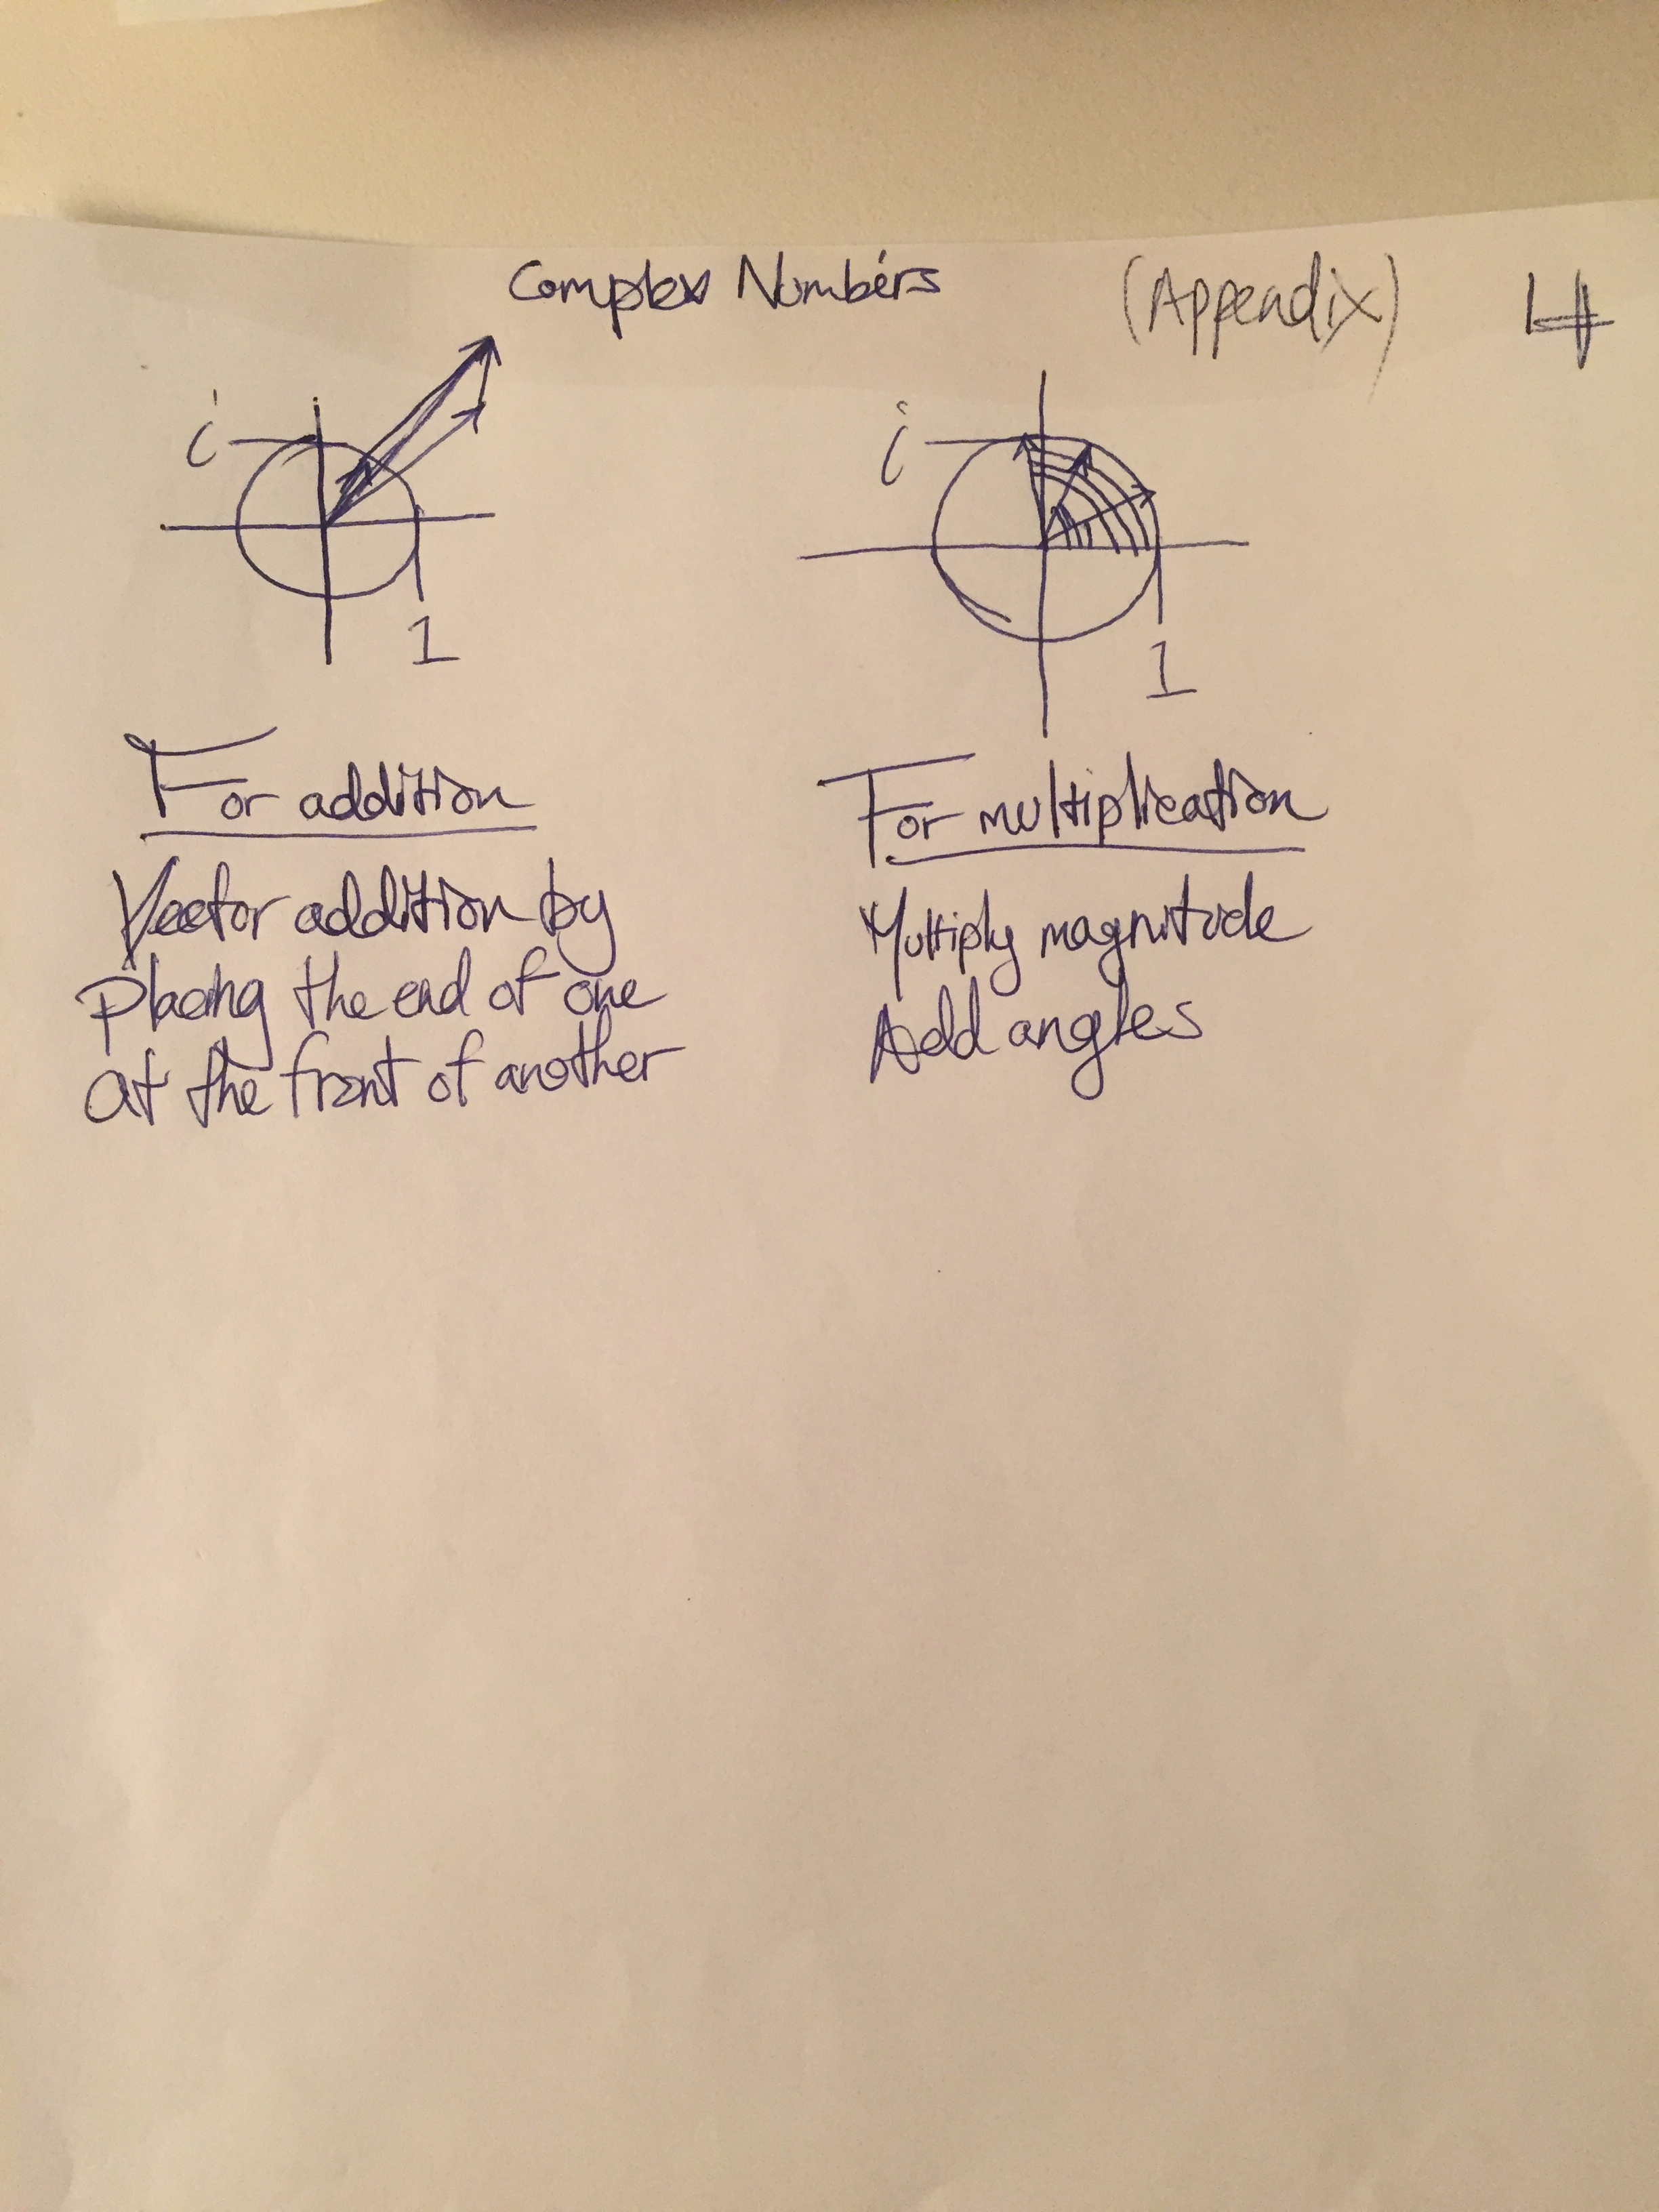 Complex Numbers (Appendix) 4
i
1
i
1
For addition
Vector addition by
placing the end of one
at the front of another
For multiplication
Multiply magnitude
Add angles